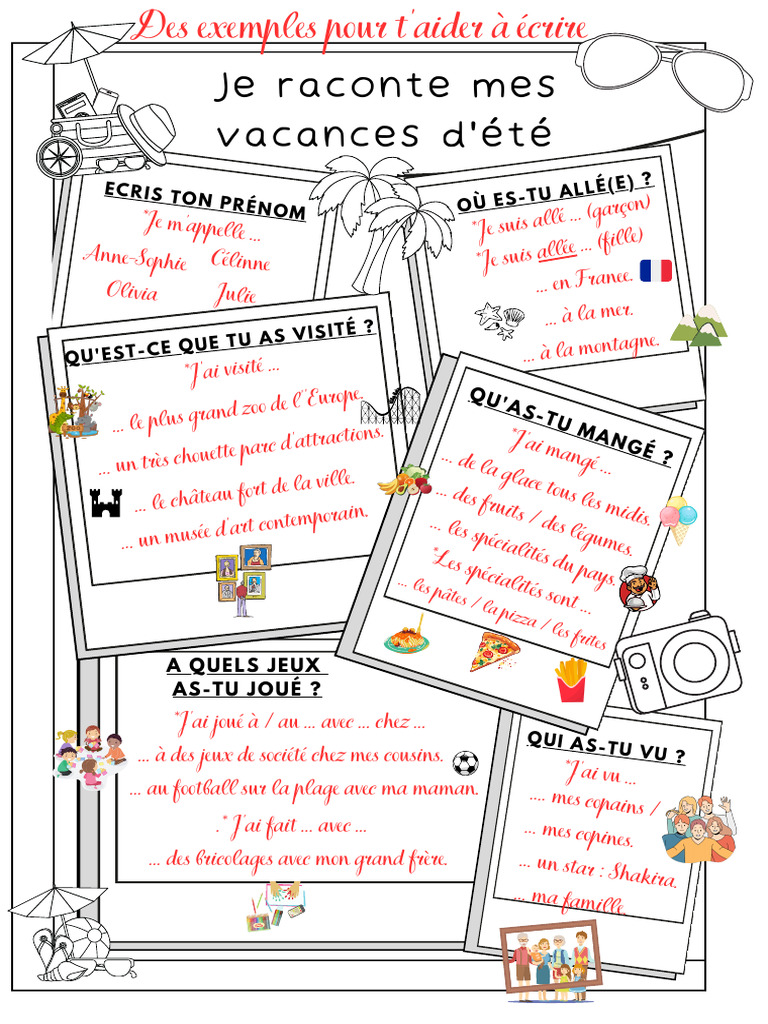 Des exemples pour t'aider à écrire
Je raconte mes
vacances d'été
ECRIS TON PRÉNOM
*Je m'appelle ...
Anne-Sophie Célinne
Olivia Julie
OÙ ES-TU ALLÉ(E) ?
*Je suis allé ... (garçon)
*Je suis allée ... (fille)
... en France.
... à la mer.
... à la montagne.
QU'EST-CE QUE TU AS VISITÉ ?
*J'ai visité ...
... le plus grand zoo de l'Europe.
... un très chouette parc d'attractions.
... le château fort de la ville.
... un musée d'art contemporain,
QU'AS-TU MANGÉ ?
*J'ai mangé ...
... de la glace tous les midis.
... des fruits / des légumes.
... les spécialités du pays.
*Les spécialités sont ...
... les pâtes / la pizza / les frites
A QUELS JEUX
AS-TU JOUÉ ?
*J'ai joué à / au ... avec ... chez ...
... à des jeux de société chez mes cousins.
... au football sur la plage avec ma maman.
.* J'ai fait ... avec ...
... des bricolages avec mon grand frère.
QUI AS-TU VU ?
*J'ai vu ...
.... mes copains /
... mes copines.
... un star : Shakira.
... ma famille.